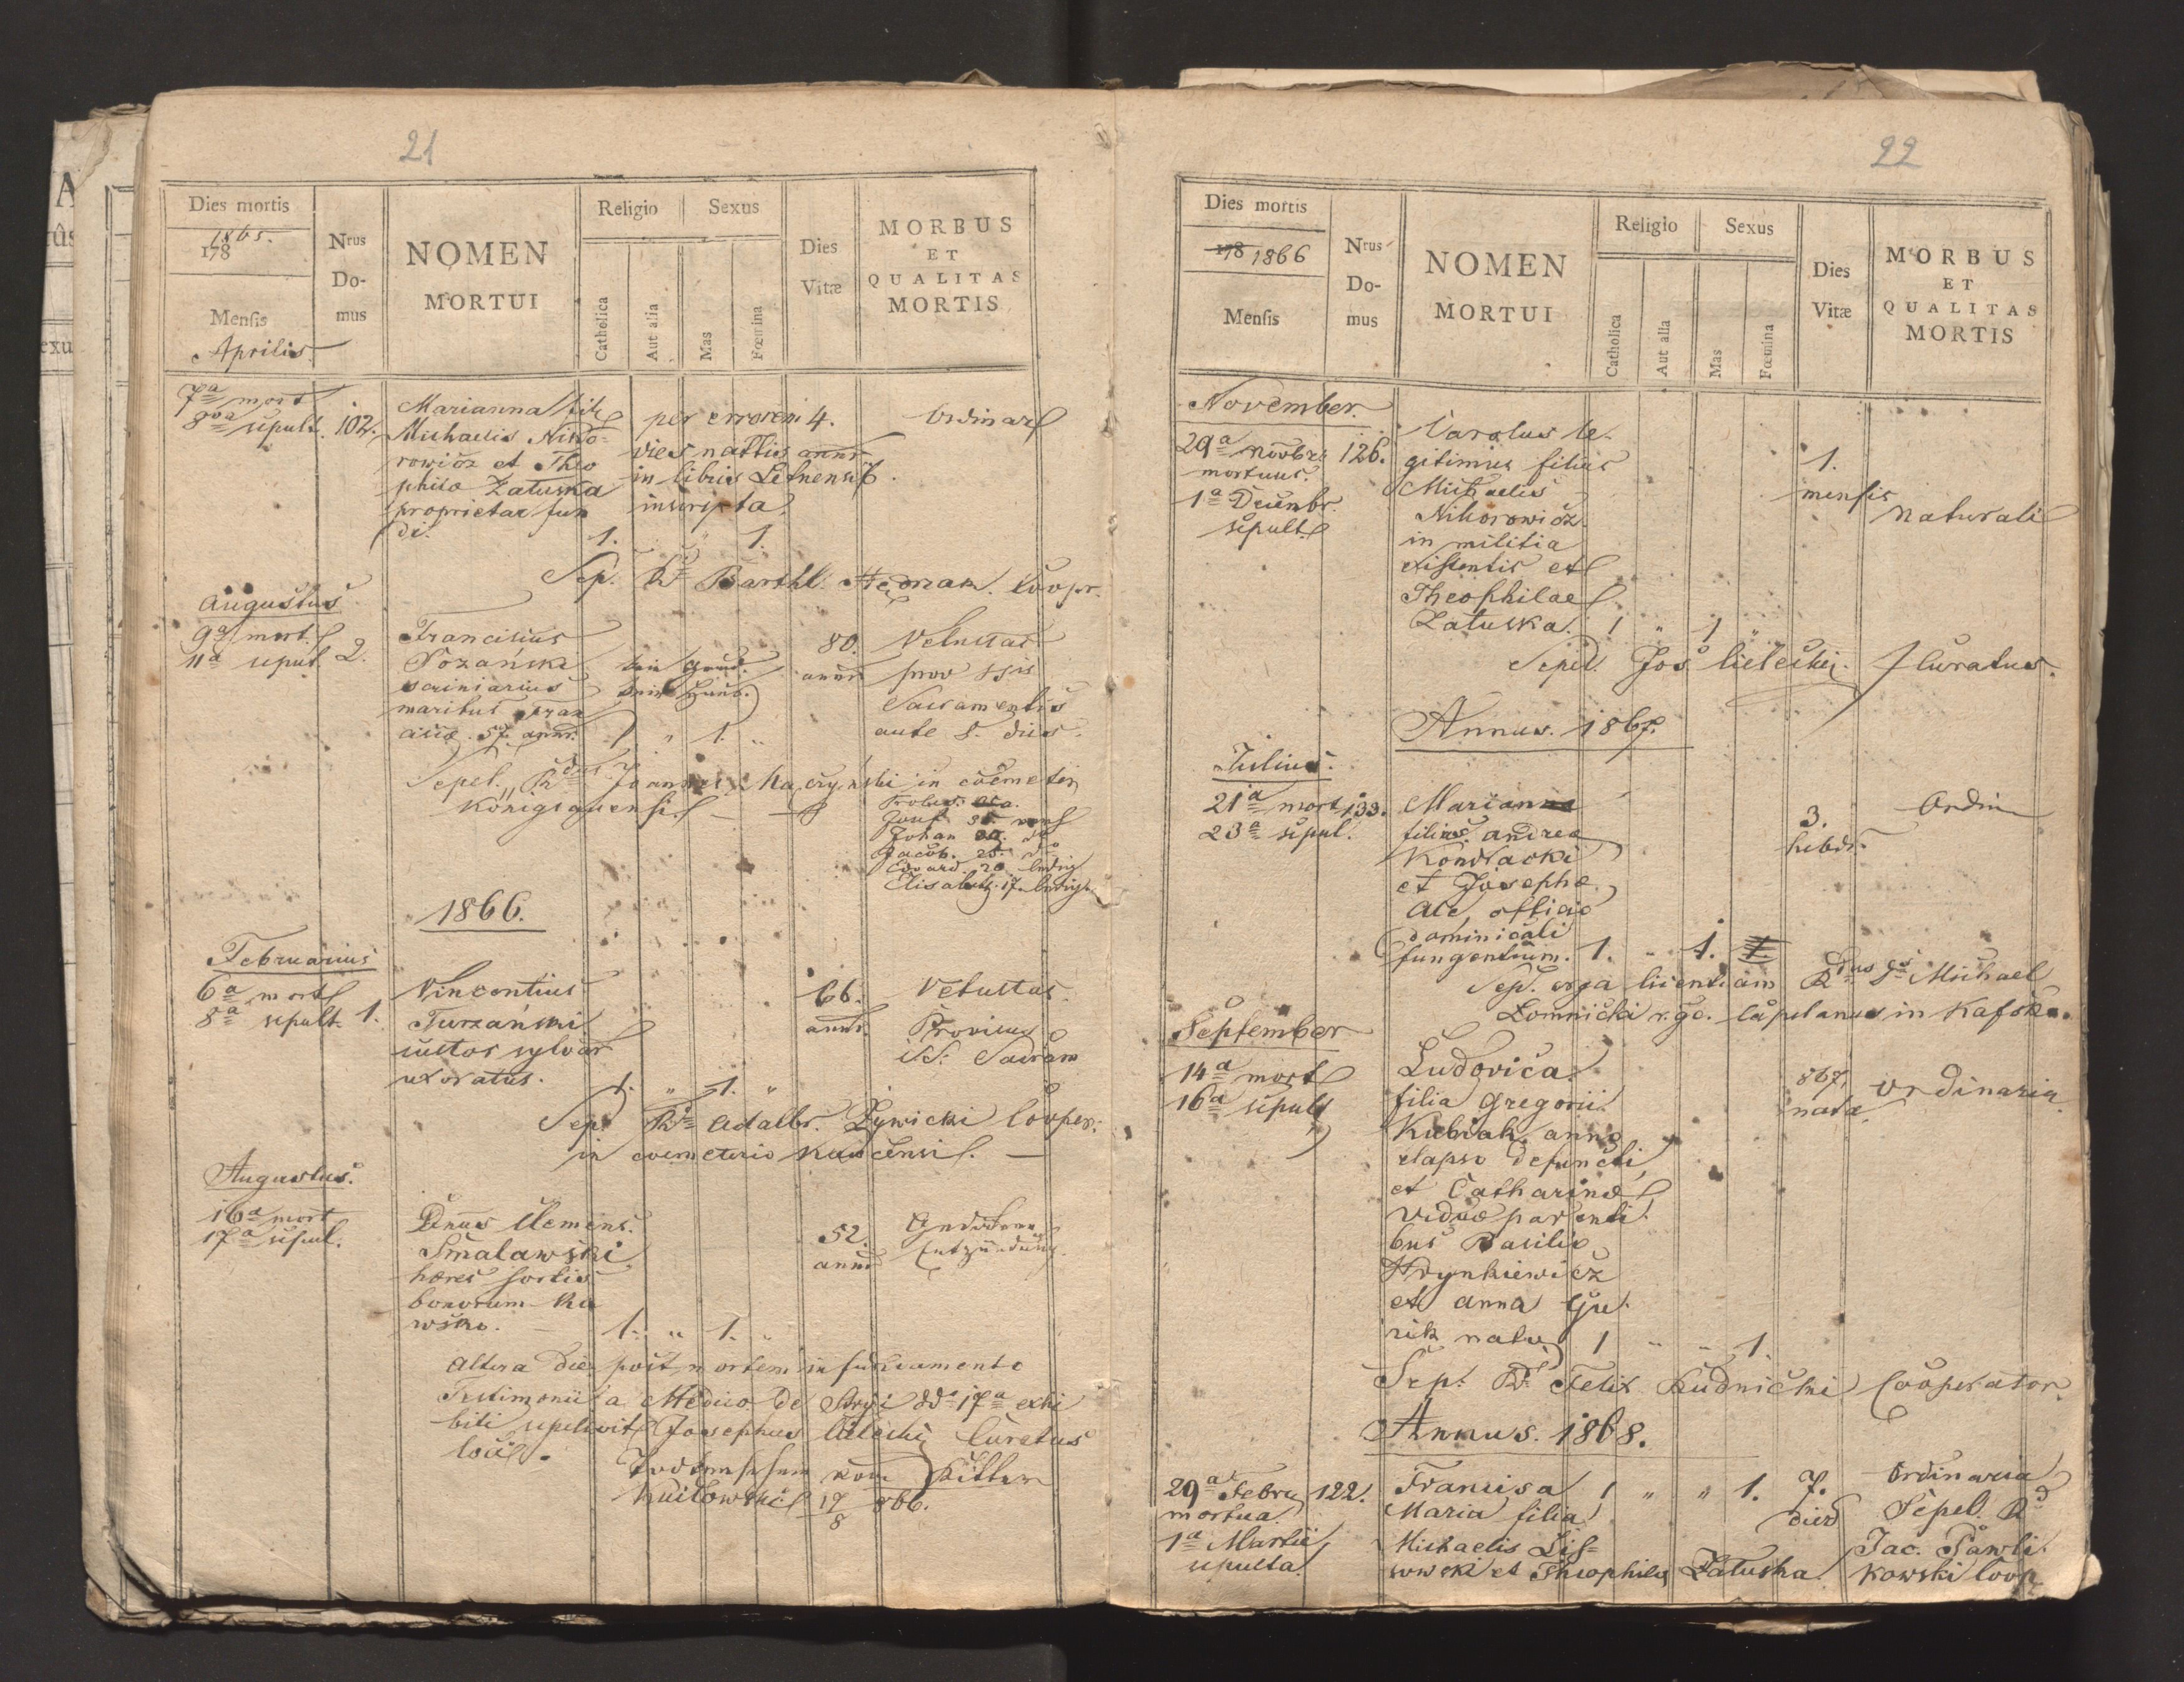 21
Dies mortis
1865.
178
Mensis
Aprilis.
Nrus
Do-
mus
NOMEN
MORTUI
Religio
Sexus
Catholica
Aut alia
Mas
Fœmina
Dies
Vitæ
MORBUS
ET
QUALITAS
MORTIS
7a mort
8va sepult. 102.
Marianna fil
Michaelis Niko=
rowicz et Theo
phila Zatuska
proprietar fun
di.
per errorem
dies nattus
in libris Letnensi
inscripta
4.
annr
Ordinar
1. " 1.
Sep. Rd Barthl. Coopr.
Augustus
9a mort.
11a sepul. 2.
Franciscus
Pozański
scriniarius
maritus
57. annr.
80.
annr
Vetustas
prov SSis
Sacramentis
ante 8. dies.
1 " 1. "
Sepel. Rdus Joannes in cœmeter
Königsauensi
Josef 35.
Johan
Jacob. 25. do
Edvard. 20. ledig
Elisabeth. 17. ledig
1866.
Februarius
6a mort
8a sepult. 1.
Vincentius
Turzański
custos sylvar
uxoratus.
66.
annr.
Vetustas.
Provisus
SS. Sacram
1. " 1. "
Sep. Rd Adalbr. Żywicki Cooper.
in cœmeterio
Augustus.
16a mort
17a sepul.
Dnus Clemens.
Smalawski
hæres sortis
bonorum Ka
wsko.
52.
annr
Entzündung.
1. " 1. "
Altera die post mortem in fundamento
Testimonii a Medico de Stryi dd 17a exhi
biti sepelivit Josephus Curatus
loci.
17/8 866.
22
Dies mortis
178 1866
Mensis
Nrus
Do-
mus
NOMEN
MORTUI
Religio
Sexus
Catholica
Aut alia
Mas
Fœmina
Dies
Vitæ
MORBUS
ET
QUALITAS
MORTIS
November.
29a Novbr. 126.
mortuus.
1a Decembr.
sepult
Carolus le-
gitimus filius
Michaelis
Nikorowicz
in militia
existentis et
Theophilae
Zatuska.
1.
mensis
naturali
1 " 1 "
Sepel. Jos Curatus.
Annus. 1867.
Julius.
21a mort 133.
23a sepul.
Marian
filius Andrea
Kondracki
et Josephæ
Ale, officio
dominicali
fungentium.
3.
hebd.
Ordin
1. " 1.
Sep. erga licentiam Rdus Ds Michael
Łomnicki r. gc. Capelanus in Kafsko.
September
14a mort
16a sepult
Ludovica
filia Gregorii
Kubiak anno
elapso defuncti
et Catharinæ
viduæ parenti
bus Basilio
Hrynkiewicz
et Anna Gu
rik nata
867.
nata
ordinaria.
1 " " 1.
Sept Rd Felix Rudnicki Cooperator
Annus. 1868.
29a Febru 122.
mortua
1a Martii
sepulta.
Francisca
Maria filia
Michaelis Lis=
sowski et Theophila Zatuska
1 " " 1.
7.
dies
Ordinaria
Sepel. Rd
Jac. Pawli
kowski Coop